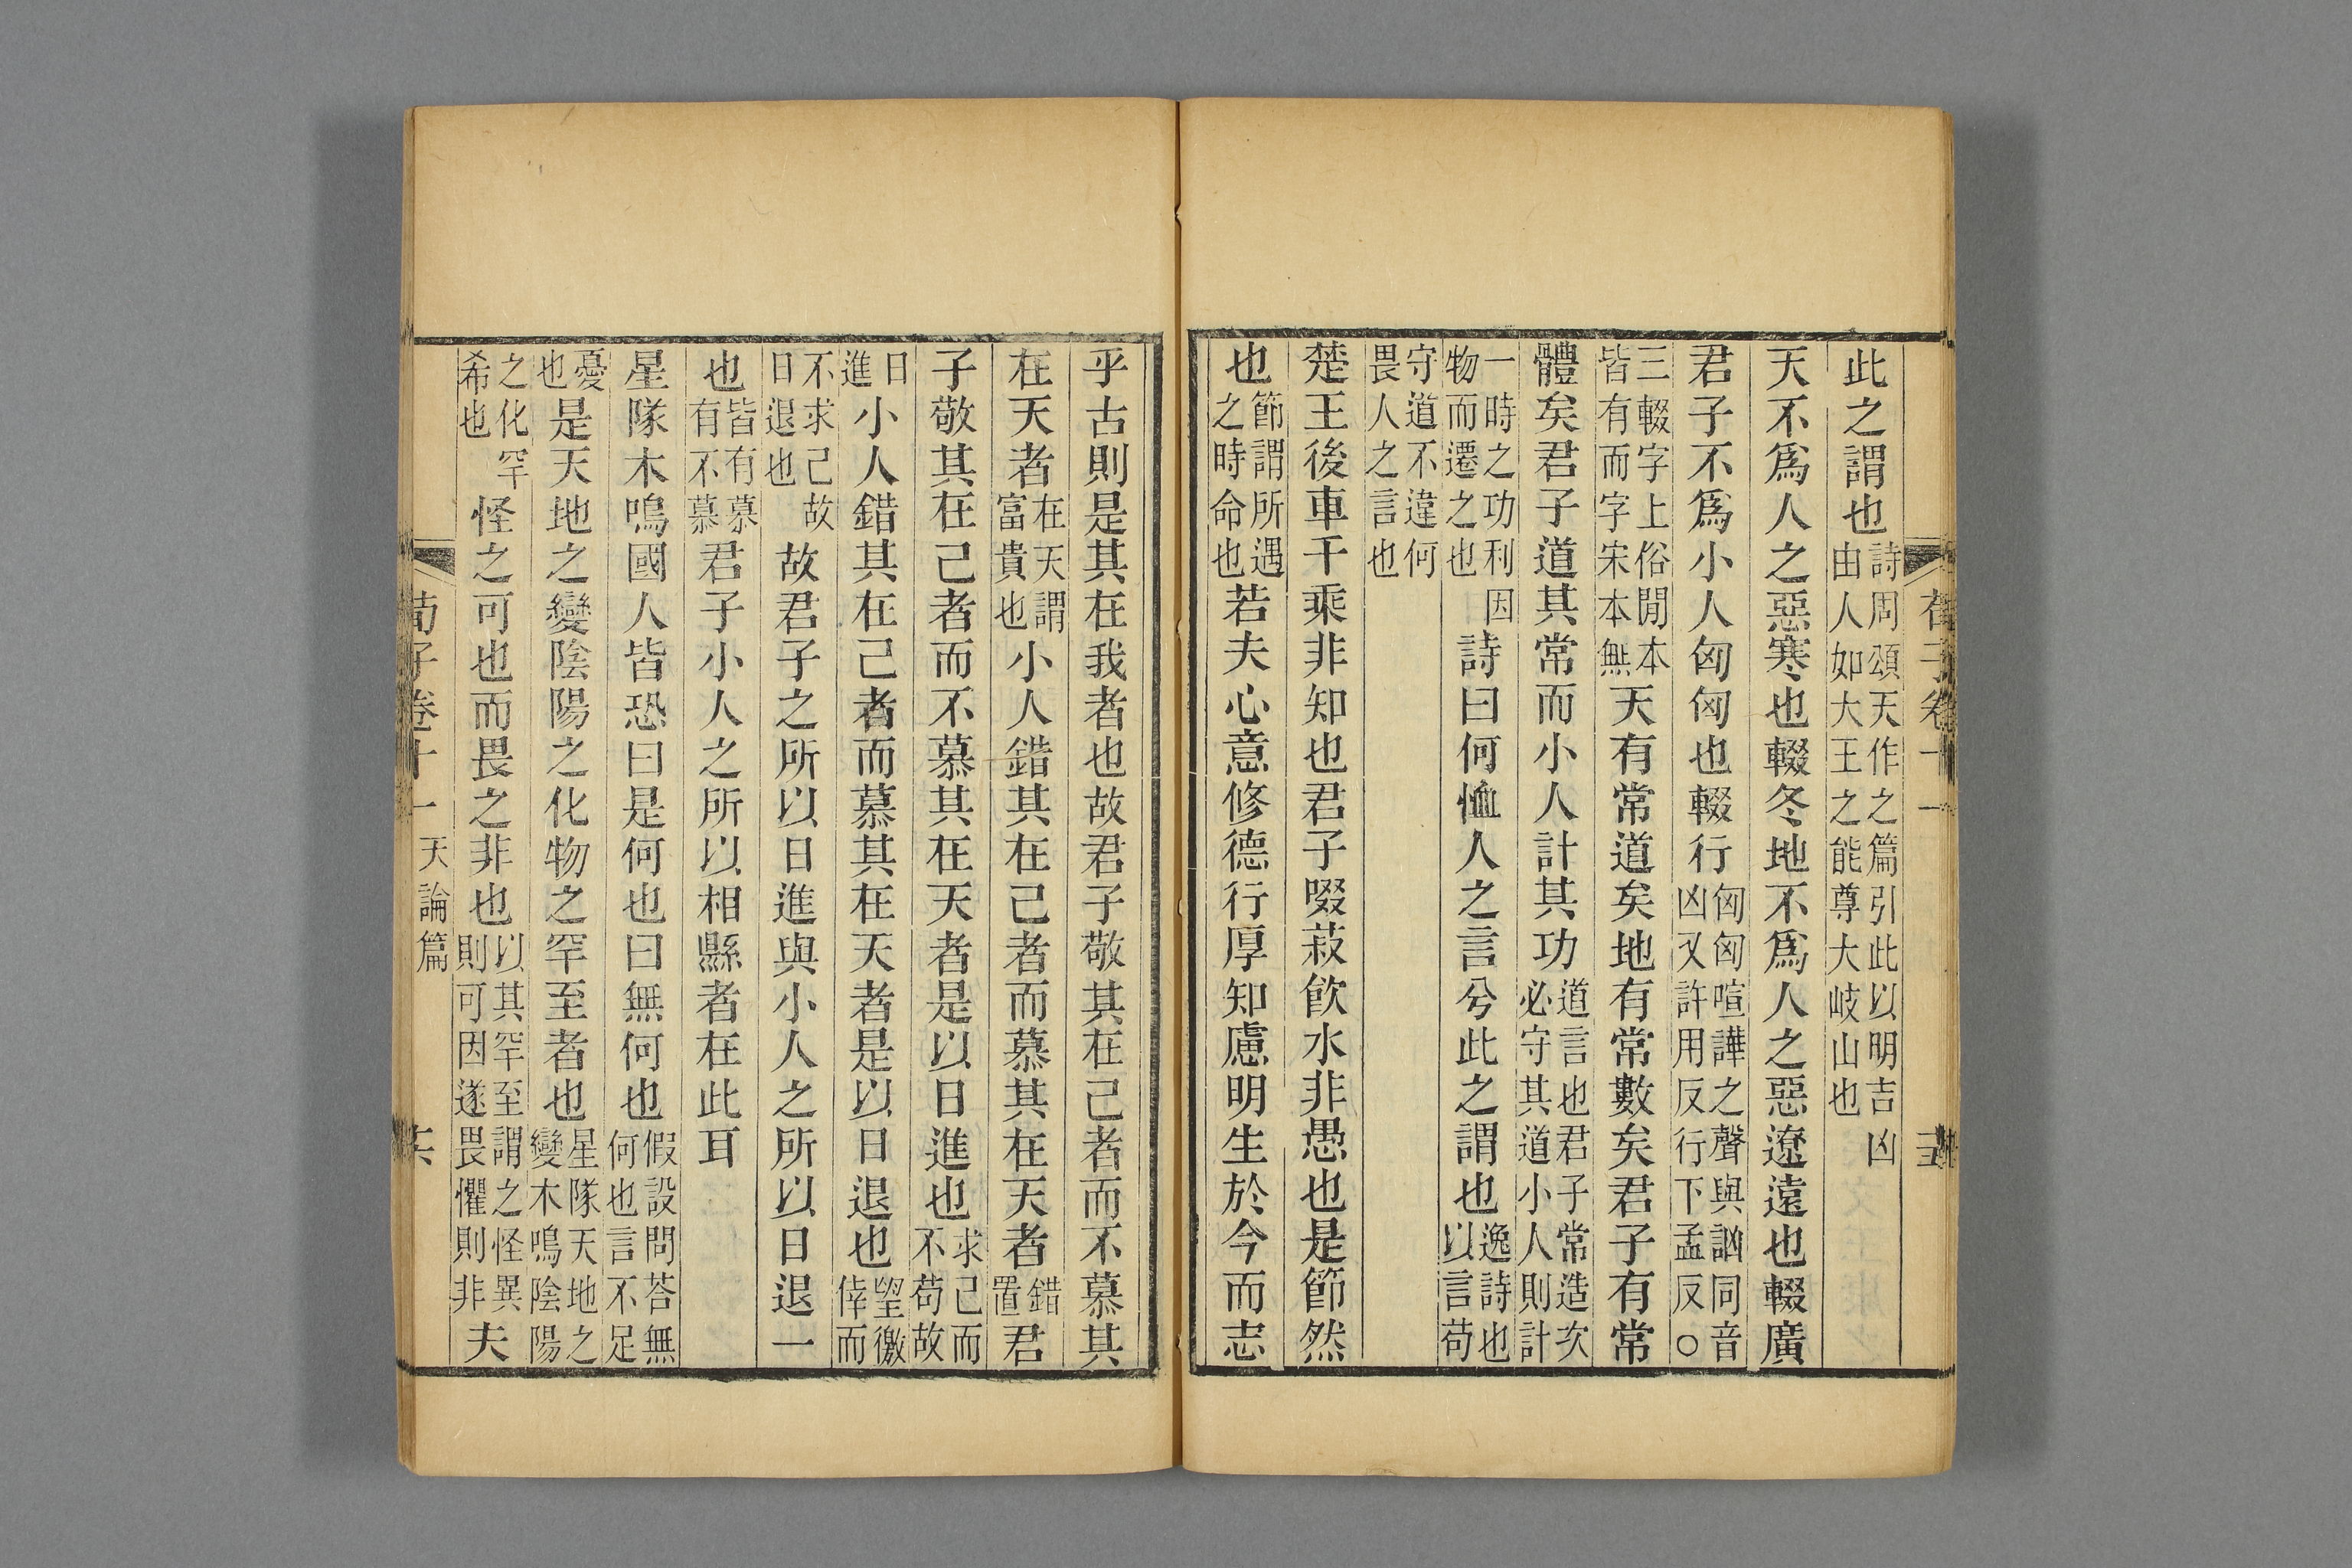 荀子卷十一
此之謂也詩周頌天作之篇引此以明吉凶由人如大王之能尊大岐山也
天不爲人之惡寒也輟冬地不爲人之惡遼遠也輟廣
君子不爲小人匈匈也輟行匈匈喧譁之聲與訩同音凶又許用反行下孟反○
三輟字上俗閒本皆有而字宋本無天有常道矣地有常數矣君子有常
體矣君子道其常而小人計其功道言也君子常造次必守其道小人則計
一時之功利因物而遷之也詩曰何恤人之言兮此之謂也逸詩也以言苟
守道不違何畏人之言也
楚王後車千乘非知也君子啜菽飮水非愚也是節然
也節謂所遇之時命也若夫心意修德行厚知慮明生於今而志
乎古則是其在我者也故君子敬其在己者而不慕其
在天者在天謂富貴也小人錯其在己者而慕其在天者錯置君
子敬其在己者而不慕其在天者是以日進也求己而不苟故
日進小人錯其在己者而慕其在天者是以日退也望徼倖而
不求己故日退也故君子之所以日進與小人之所以日退一
也皆有慕有不慕君子小人之所以相縣者在此耳
星隊木鳴國人皆恐曰是何也曰無何也假設問荅無何也言不足
憂也是天地之變陰陽之化物之罕至者也星隊天地之變木鳴陰陽
之化罕希也怪之可也而畏之非也以其罕至謂之怪異則可因遂畏懼則非夫
荀子卷十一 天論篇